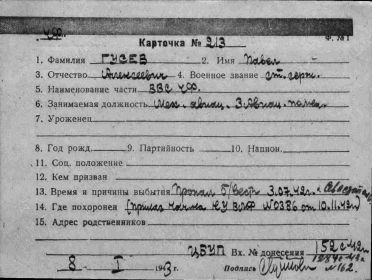 ЧФ. Ф. №1
Карточка № 213
1. Фамилия ГУСЕВ 2. Имя Павел
3. Отчество Алексеевич 4. Военное звание ст. серж.
5. Наименование части ВВС ЧФ.
6. Занимаемая должность Мех. авиац. 3 Авиац. полка
7. Уроженец
8. Год рожд. 9. Партийность 10. Национ.
11. Соц. положение
12. Кем призван
13. Время и причины выбытия Пропал б/вести 3.07.42г. Севастополь
14. Где похоронен (приказ КУ ВМФ №0386 от 10.11.42г)
15. Адрес родственников
ЦБУП Вх. № донесения 152с-42г.
8 - I 1943г. Подпись №162.